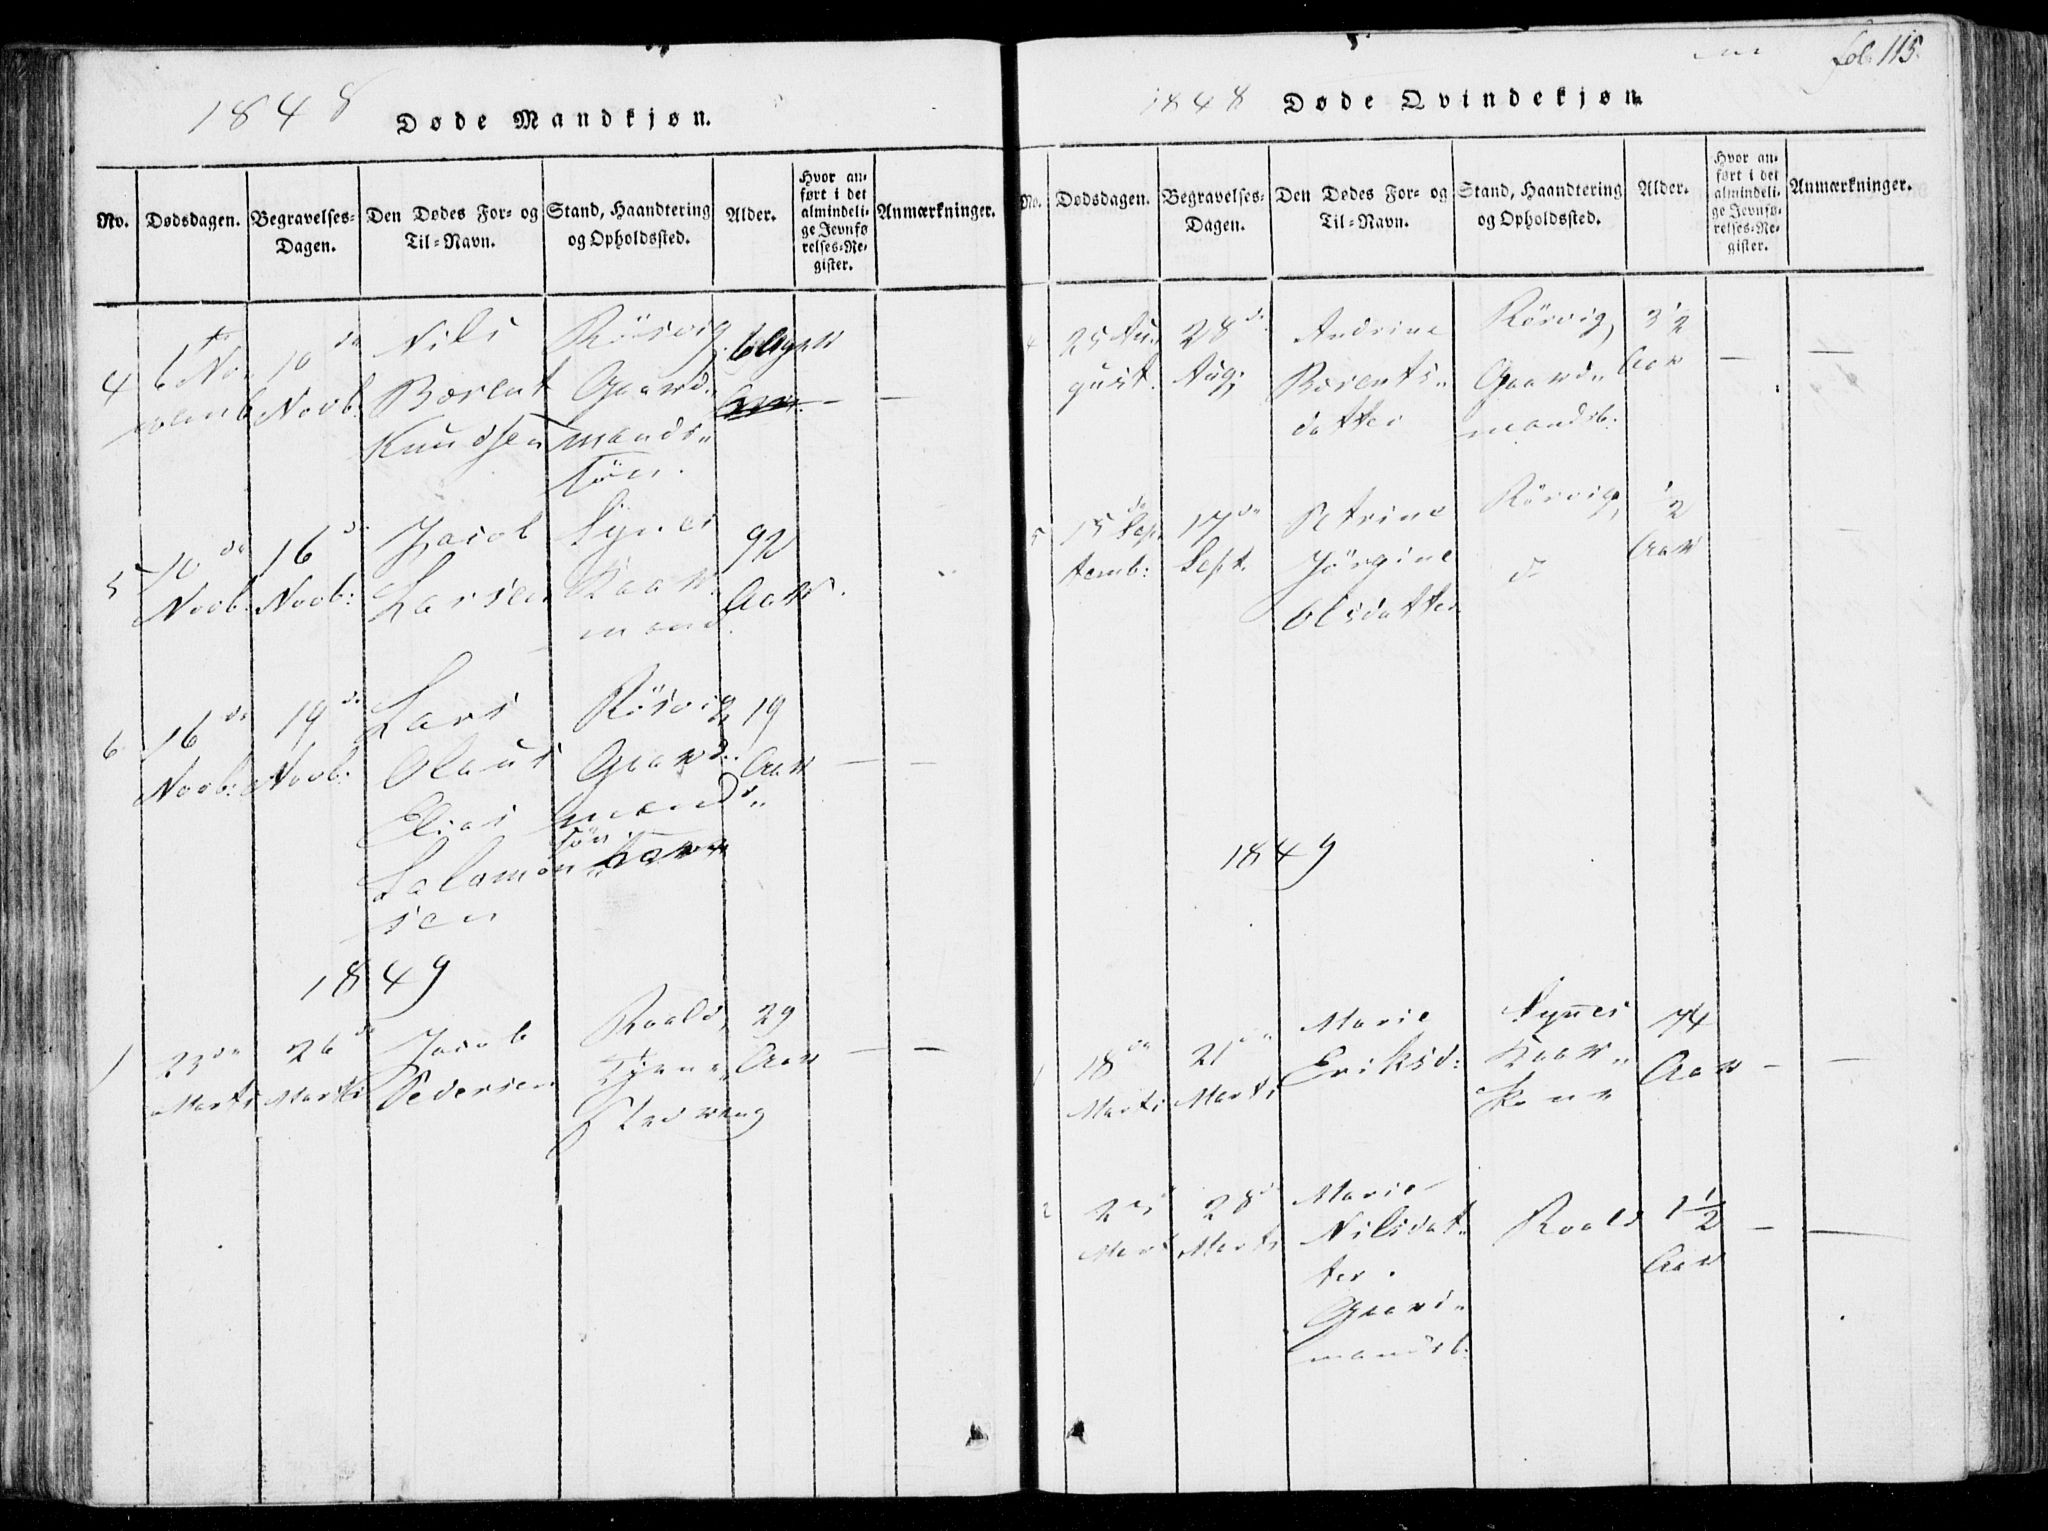 fol. 115.
1848 Døde Mandkjøn.
No. Dødsdagen. Begravelses-Dagen. Den Dødes For- og Til-Navn. Stand, Haandtering og Opholdssted. Alder. Hvor anført i det almindelige Jevnførelses-Register. Anmærkninger.
4 6te Novemb 10de Novb. Nils Bærent Knudsen Rörvig Gaardmands Sön. 6 Uger — —
5 10de Novb: 16de Novb: Jacob Larsen Synes Kaarmand. 92 Aar.
6 16de Novb: 19de Novb: Lars Olaus Elias Salomonsen Rörvig Gaardmands Sön 19 Aar — —
1849
1 23de Marts 26de Marts Jacob Pedersen Roald, 29 Aar — —
1848 Døde Qvindekjøn.
No. Dødsdagen. Begravelses-Dagen. Den Dødes For- og Til-Navn. Stand, Haandtering og Opholdssted. Alder. Hvor anført i det almindelige Jevnførelses-Register. Anmærkninger.
4 25 August. 28de Aug: Andrine Bærentsdatter Rörvig, Gaardmandsb. 3½ Aar — —
5 15de Septemb: 17de Sept. Petrine Jörgine Olsdatter Rörvig, do ½ Aar
1849
1 18de Marts 21de Marts Marie Eriksd: Synes Kaarkone 74 Aar — —
2 25 Mart 28de Marts Marie Nilsdatter. Gaardmandsb. Roald 1½ Aar — —